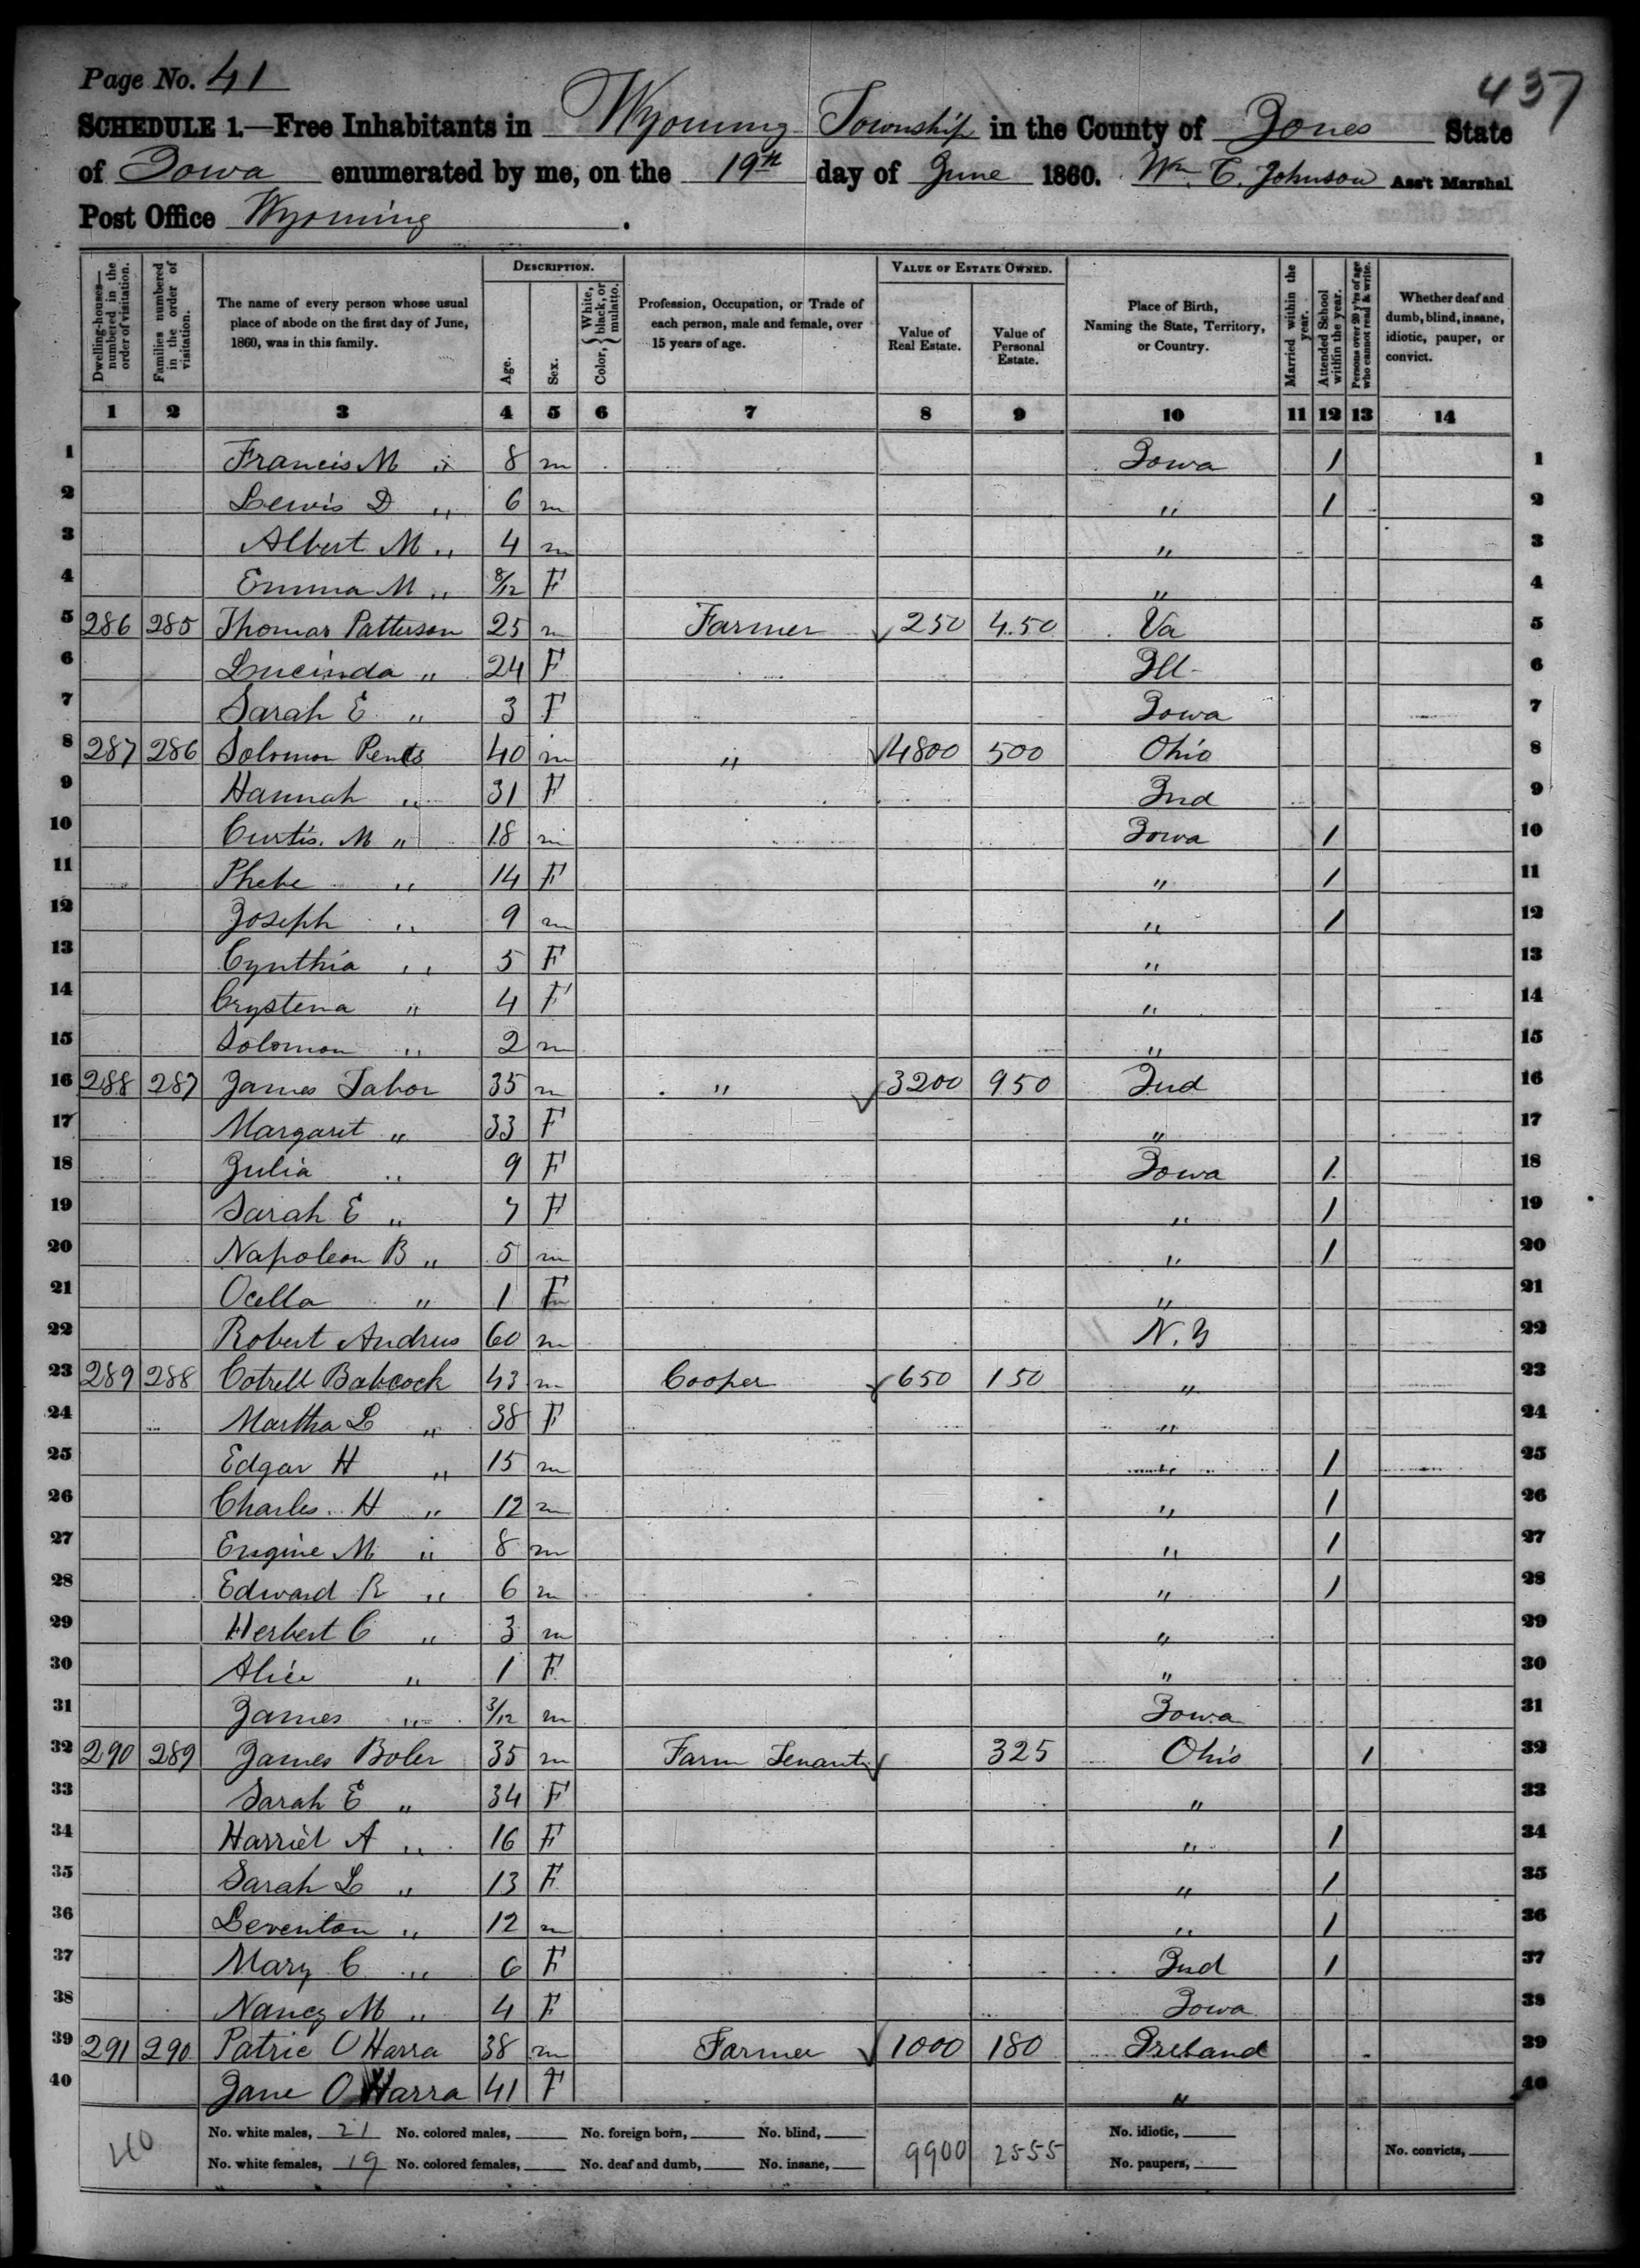 Page No. 41
437
SCHEDULE 1.—Free Inhabitants in Wyoming Township in the County of Jones State
of Iowa enumerated by me, on the 19th day of June 1860. Wm. C. Johnson Ass't Marshal
Post Office Wyoming .
DESCRIPTION. VALUE OF ESTATE OWNED.
Dwelling-houses—numbered in the order of visitation. Families numbered in the order of visitation. The name of every person whose usual place of abode on the first day of June, 1860, was in this family. Age. Sex. Color, { White, black, or mulatto. Profession, Occupation, or Trade of each person, male and female, over 15 years of age. Value of Real Estate. Value of Personal Estate. Place of Birth, Naming the State, Territory, or Country. Married within the year. Attended School within the year. Persons over 20 y'rs of age who cannot read & write. Whether deaf and dumb, blind, insane, idiotic, pauper, or convict.
1 2 3 4 5 6 7 8 9 10 11 12 13 14
1 Francis M " 8 m Iowa 1 1
2 Lewis D " 6 m " 1 2
3 Albert M " 4 m " 3
4 Emma M " 8/12 F " 4
5 286 285 Thomas Patterson 25 m Farmer 250 450 Va 5
6 Lucinda " 24 F Ill 6
7 Sarah E " 3 F Iowa 7
8 287 286 Solomon Pents 40 m " 4800 500 Ohio 8
9 Hannah " 31 F Ind 9
10 Curtis. M " 18 m Iowa 1 10
11 Phebe " 14 F " 1 11
12 Joseph " 9 m " 1 12
13 Cynthia " 5 F " 13
14 Crystena " 4 F " 14
15 Solomon " 2 m " 15
16 288 287 James Tabor 35 m " 3200 950 Ind 16
17 Margaret " 33 F " 17
18 Julia " 9 F Iowa 1 18
19 Sarah E " 7 F " 1 19
20 Napoleon B " 5 m " 1 20
21 Ocella " 1 F " 21
22 Robert Andrus 60 m N.Y 22
23 289 288 Cotrell Babcock 43 m Cooper 650 150 " 23
24 Martha L " 38 F " 24
25 Edgar H " 15 m " 1 25
26 Charles H " 12 m " 1 26
27 Eugine M " 8 m " 1 27
28 Edward R " 6 m " 1 28
29 Herbert C " 3 m " 29
30 Alice " 1 F " 30
31 James " 3/12 m Iowa 31
32 290 289 James Boler 35 m Farm Tenant 325 Ohio 1 32
33 Sarah E " 34 F " 33
34 Harriet A " 16 F " 1 34
35 Sarah L " 13 F " 1 35
36 Leventon " 12 m " 1 36
37 Mary C " 6 F Ind 1 37
38 Nancy M " 4 F Iowa 38
39 291 290 Patric O Harra 38 m Farmer 1000 180 Ireland 39
40 Jane O Harra 41 F " 40
40 No. white males, 21 No. colored males, No. foreign born, No. blind, 9900 2555 No. idiotic, No. convicts,
No. white females, 19 No. colored females, No. deaf and dumb, No. insane, No. paupers,